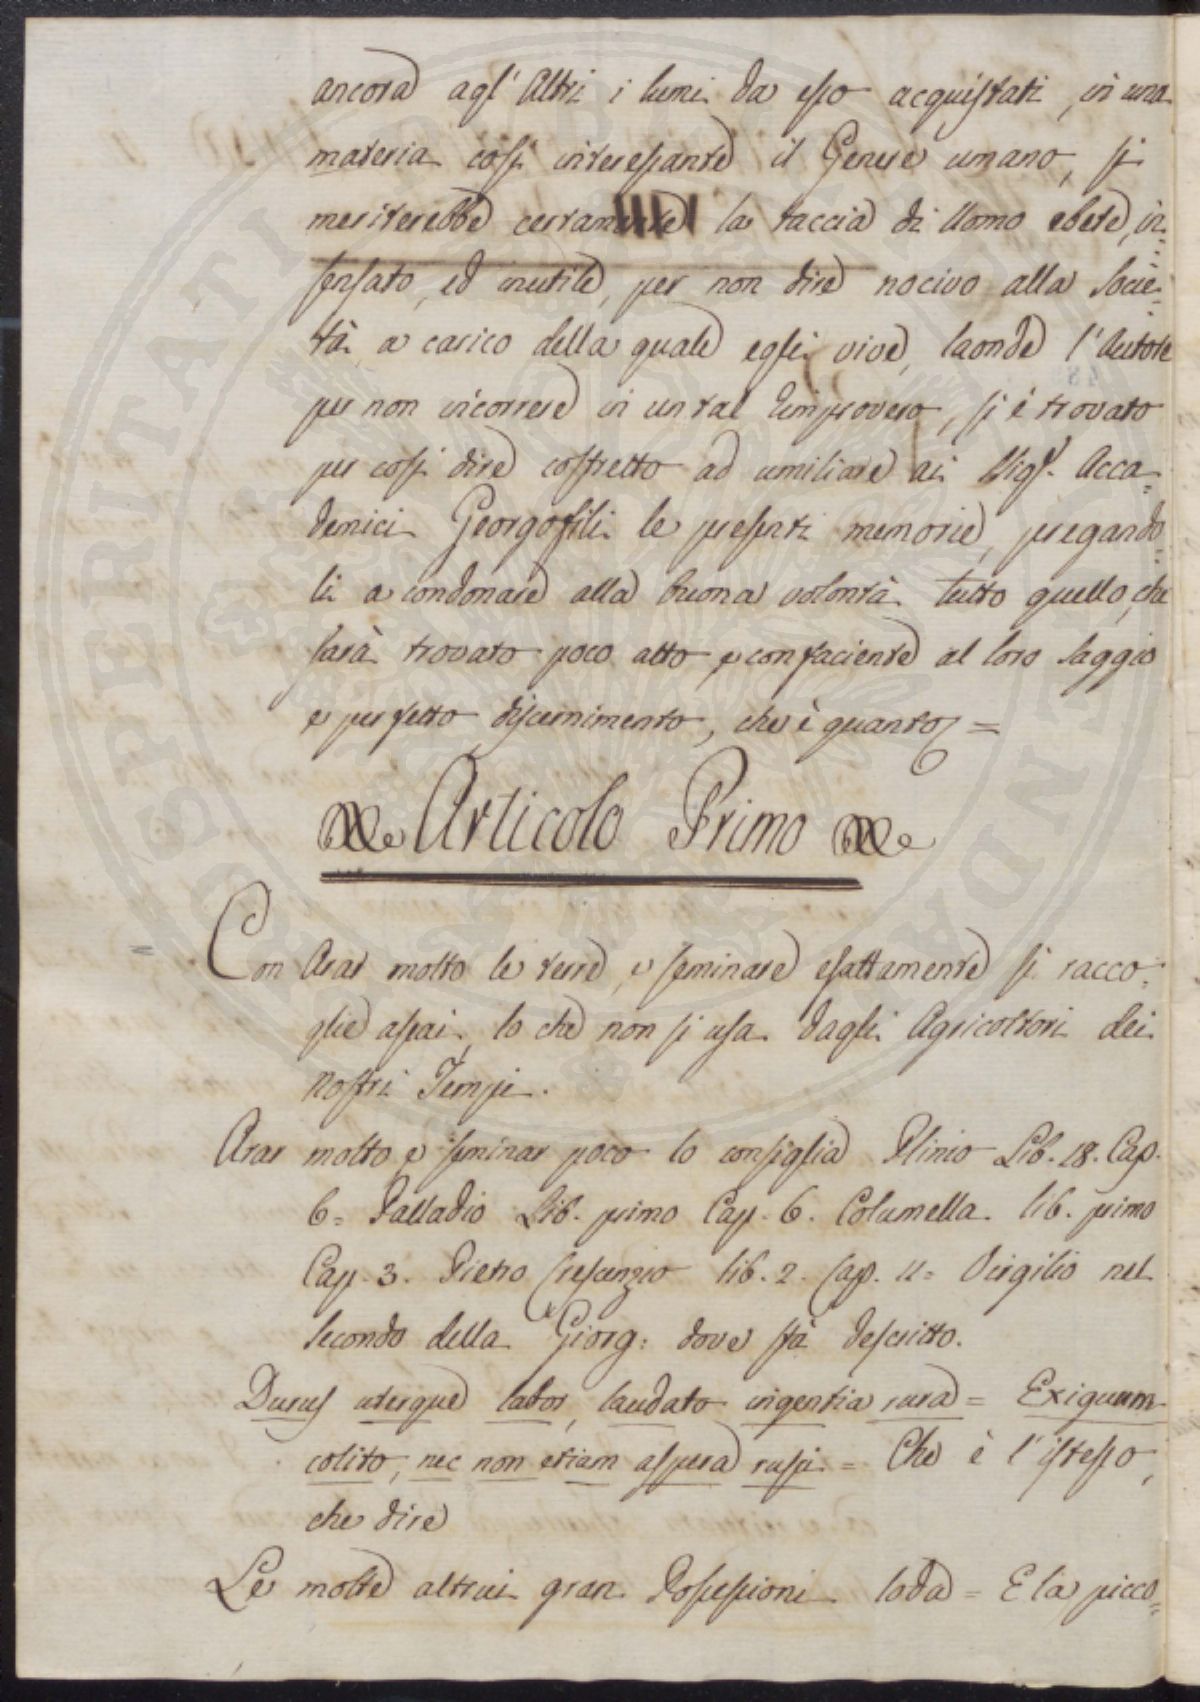 ancora agl' Altri i lumi da esso acquistati, in una
materia così interessante il Genere umano, si
meriterebbe certamente la taccia di Uomo ebete, in=
sensato, ed inutile, per non dire nocivo alla Socie=
tà a carico della quale egli vive, laonde l'Autore
per non incorrere in un tal rimprovero, si è trovato
per così dire costretto ad umiliare ai Sigg.ri Acca=
demici Georgofili le presenti memorie, pregando=
li a condonare alla buona volontà tutto quello, che
sarà trovato poco atto, e confaciente al loro saggio
e perfetto discernimento, che è quanto =
Articolo Primo
Con Arar molto le terre, e seminare esattamente si racco=
glie assai, lo che non si usa dagli Agricoltori dei
nostri Tempi.
Arar molto e seminar poco lo consiglia Plinio Lib. 18. Cap.
6= Palladio Lib. primo Cap. 6. Columella lib. primo
Cap. 3. Pietro Crescenzio lib. 2. Cap. 11= Virgilio nel
secondo della Giorg: dove stà descritto.
Durus uterque labor, laudato ingentia rura = Exiguum
colito, nec non etiam aspera ruspi = Che è l'istesso,
che dire
Le molte altrui gran Possessioni loda = E la picco=